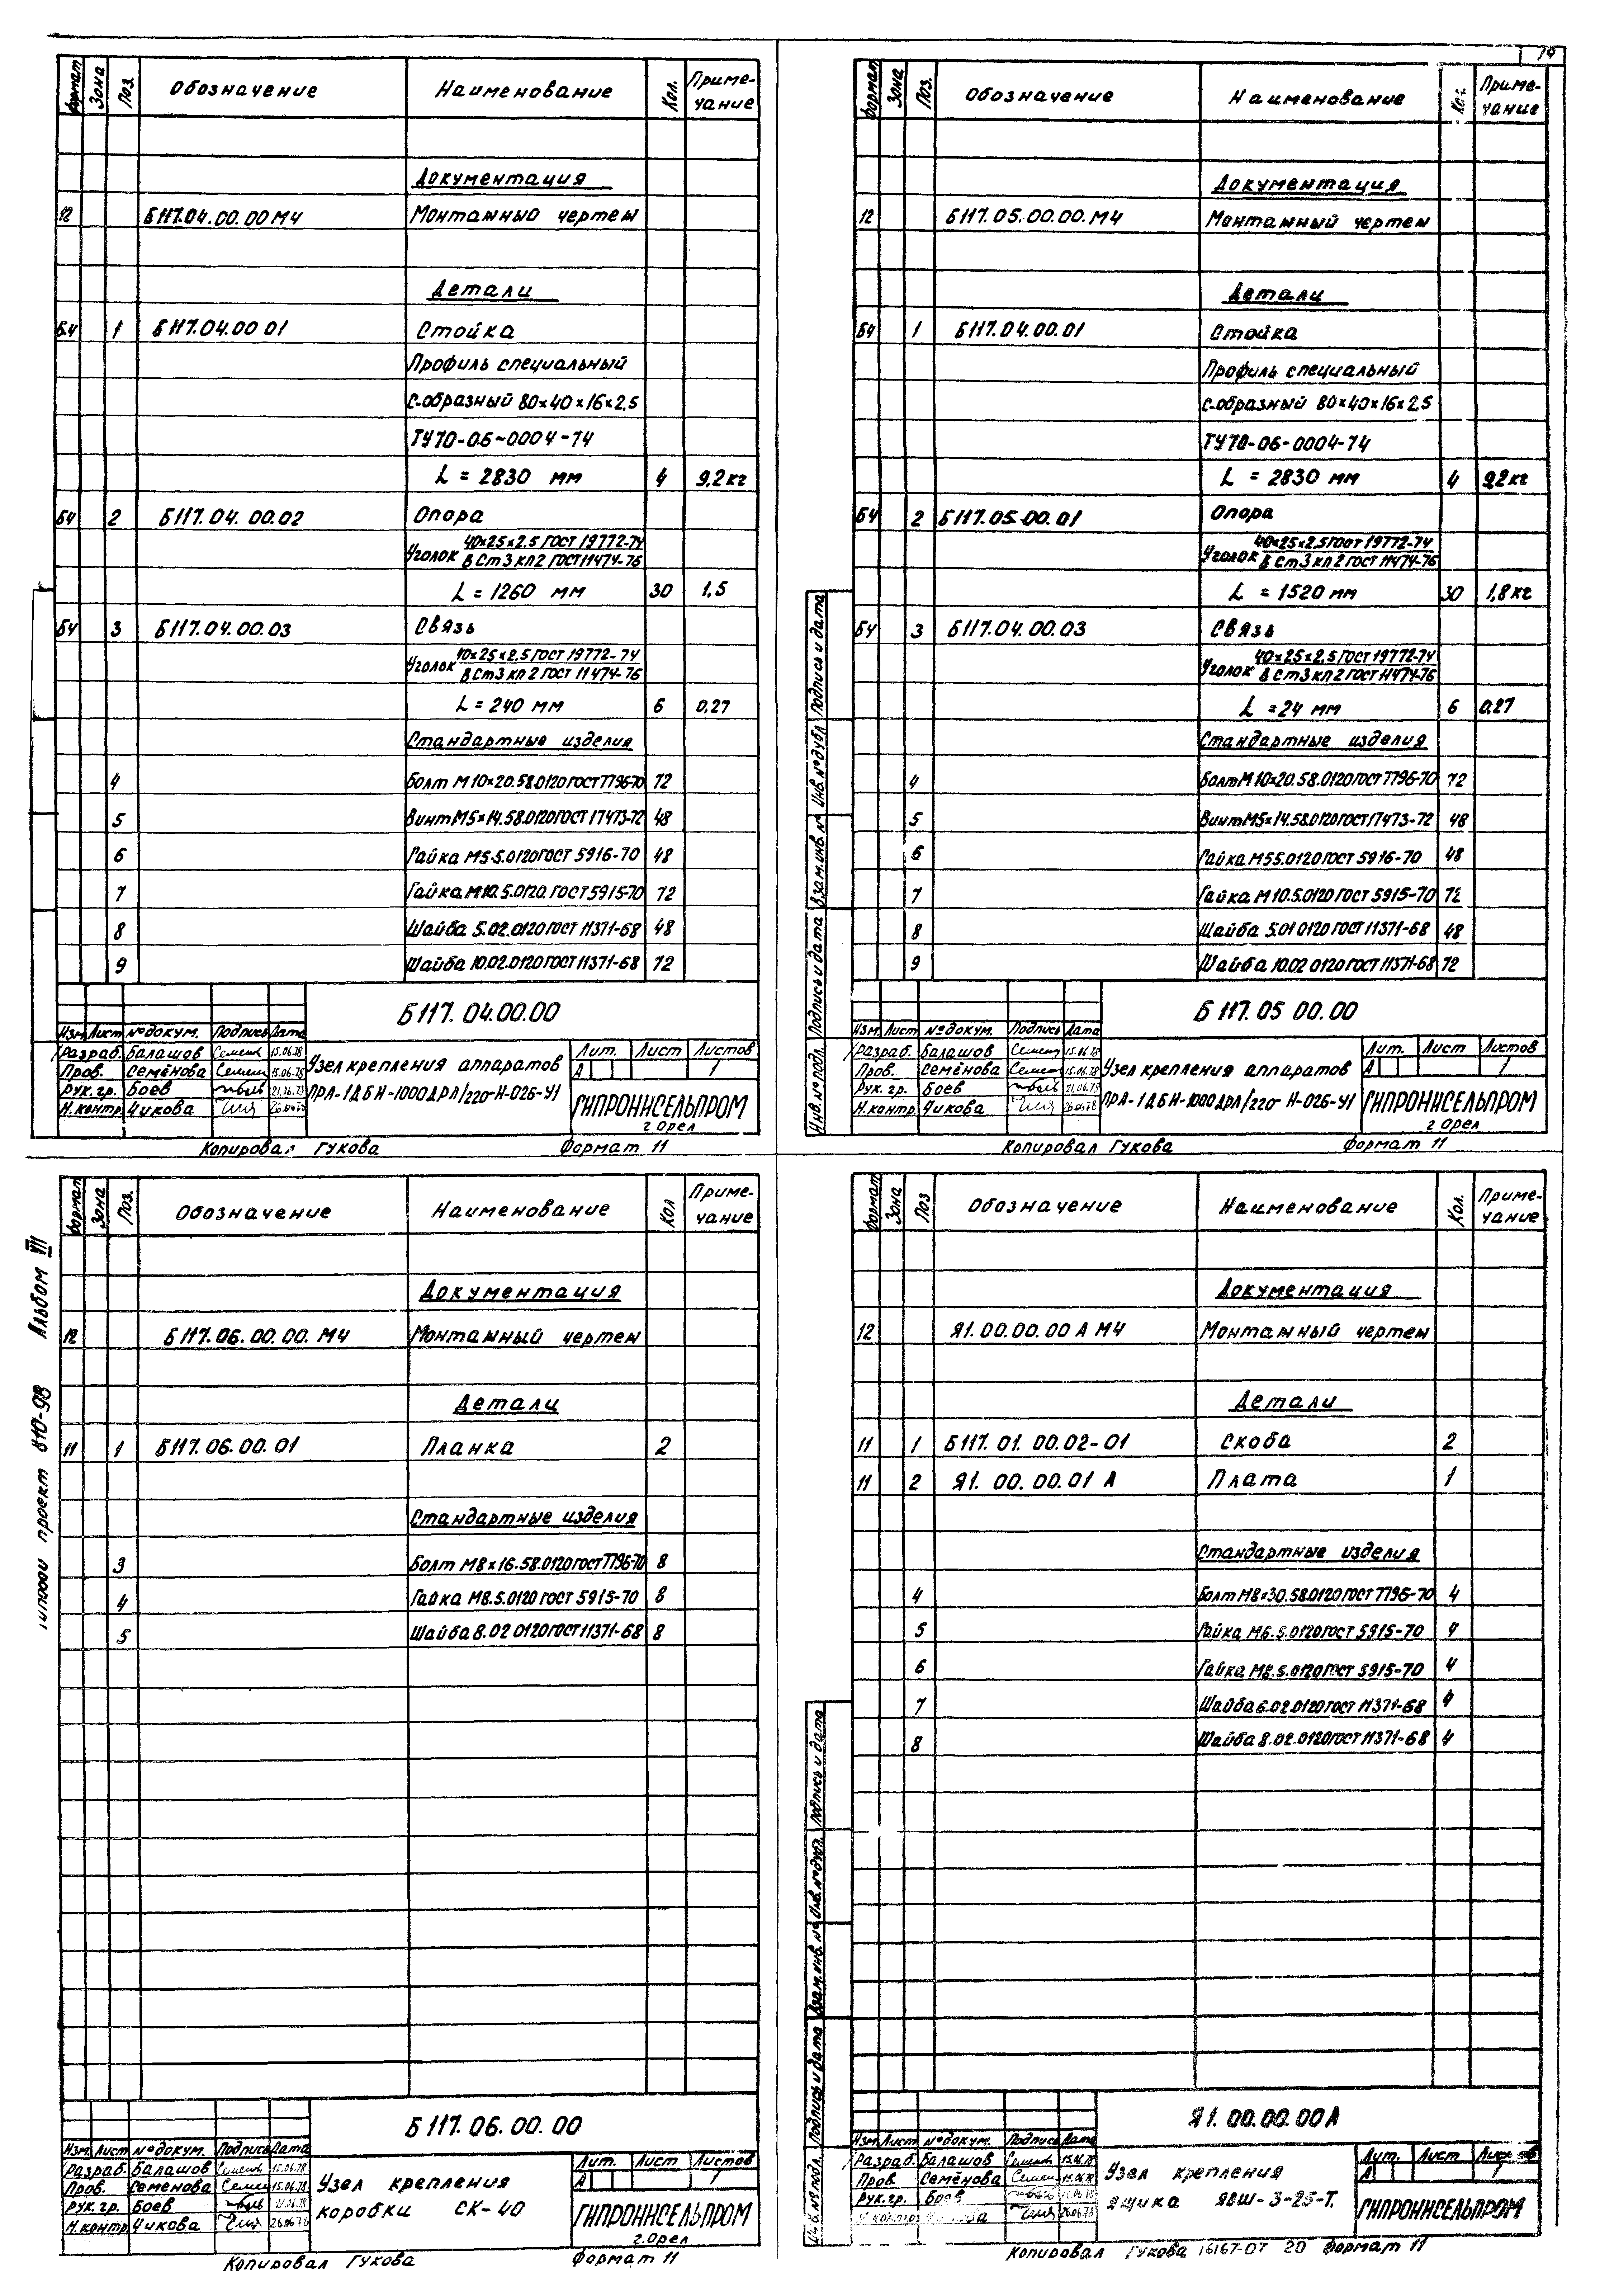 19
Формат Зона Поз. Обозначение Наименование Кол. Приме-чание
Документация
12 Б117.04.00.00 МЧ Монтажный чертеж
Детали
Б.Ч 1 Б117.04.00 01 Стойка
Профиль специальный
С-образный 80×40×16×2,5
ТУ70-06-0004-74
L = 2830 мм 4 9,2 кг
БЧ 2 Б117.04.00.02 Опора
Уголок 40×25×2,5 ГОСТ 19772-74
В Ст3 кп2 ГОСТ 11474-76
L = 1260 мм 30 1,5
БЧ 3 Б117.04.00.03 Связь
Уголок 40×25×2,5 ГОСТ 19772-74
В Ст3 кп2 ГОСТ 11474-76
L = 240 мм 6 0,27
Стандартные изделия
4 Болт М10×20.58.0120 ГОСТ 7796-70 72
5 Винт М5×14.58.0120 ГОСТ 17473-72 48
6 Гайка М5.5.0120 ГОСТ 5916-70 48
7 Гайка М10.5.0120. ГОСТ 5915-70 72
8 Шайба 5.02.0120 ГОСТ 11371-68 48
9 Шайба 10.02.0120 ГОСТ 11371-68 72
Б117.04.00.00
Изм. Лист №докум. Подпись Дата
Разраб. Балашов 15.06.78
Пров. Семёнова 15.06.78
Рук. гр. Боев 21.06.78
Н. контр. Чикова 26.06.78
Узел крепления аппаратов
ПРА-1ДБН-1000ДРЛ/220-Н-026-У1
Лит. Лист Листов
А 1
ГИПРОНИСЕЛЬПРОМ
г Орел
Копировал Гукова Формат 11
Формат Зона Поз. Обозначение Наименование Кол. Приме-чание
Документация
12 Б117.05.00.00.МЧ Монтажный чертеж
Детали
БЧ 1 Б117.04.00.01 Стойка
Профиль специальный
С-образный 80×40×16×2,5
ТУ70-06-0004-74
L = 2830 мм 4 9,2 кг
БЧ 2 Б117.05.00.01 Опора
Уголок 40×25×2,5 ГОСТ 19772-74
В Ст3 кп2 ГОСТ 11474-76
L = 1520 мм 30 1,8 кг
БЧ 3 Б117.04.00.03 Связь
Уголок 40×25×2,5 ГОСТ 19772-74
В Ст3 кп2 ГОСТ 11474-76
L = 24 мм 6 0,27
Стандартные изделия
4 Болт М10×20.58.0120 ГОСТ 7796-70 72
5 Винт М5×14.58.0120 ГОСТ 17473-72 48
6 Гайка М55.0120 ГОСТ 5916-70 48
7 Гайка М10.5.0120 ГОСТ 5915-70 72
8 Шайба 5.01 0120 ГОСТ 11371-68 48
9 Шайба 10.02 0120 ГОСТ 11371-68 72
Инв. № подл. Подпись и дата Взам. инв. № Инв. № дубл Подпись и дата
Б 117.05 00.00
Изм. Лист №докум. Подпись Дата
Разраб. Балашов 15.06.78
Пров. Семёнова 15.06.78
Рук. гр. Боев 21.06.78
Н. контр. Чикова 26.06.78
Узел крепления аппаратов
ПРА-1ДБН-1000ДРЛ/220-Н-026-У1
Лит. Лист Листов
А 1
ГИПРОНИСЕЛЬПРОМ
г Орел
Копировал Гукова Формат 11
Типовой проект 810-98 Альбом VII
Формат Зона Поз. Обозначение Наименование Кол Приме-чание
Документация
12 Б117.06.00.00.МЧ Монтажный чертеж
Детали
11 1 Б117.06.00.01 Планка 2
Стандартные изделия
3 Болт М8×16.58.0120 ГОСТ 7796-70 8
4 Гайка М8.5.0120 ГОСТ 5915-70 8
5 Шайба 8.02 0120 ГОСТ 11371-68 8
Б117.06.00.00
Изм. Лист №докум. Подпись Дата
Разраб. Балашов 15.06.78
Пров. Семёнова 15.06.78
Рук. гр. Боев 21.06.78
Н. контр. Чикова 26.06.78
Узел крепления
коробки СК-40
Лит. Лист Листов
А 1
ГИПРОНИСЕЛЬПРОМ
г.Орел
Копировал Гукова Формат 11
Формат Зона Поз Обозначение Наименование Кол. Приме-чание
Документация
12 Я1.00.00.00 А МЧ Монтажный чертеж
Детали
11 1 Б117.01.00.02-01 Скоба 2
11 2 Я1.00.00.01 А Плата 1
Стандартные изделия
4 Болт М8×30.58.0120 ГОСТ 7796-70 4
5 Гайка М6.5.0120 ГОСТ 5915-70 4
6 Гайка М8.5.0120 ГОСТ 5915-70 4
7 Шайба 6.02.0120 ГОСТ 11371-68 4
8 Шайба 8.02.0120 ГОСТ 11371-68 4
Инв. № подл. Подпись и дата Взам. инв. № Инв. № дубл. Подпись и дата
Я1.00.00.00 А
Изм. Лист №докум. Подпись Дата
Разраб. Балашов 15.06.78
Пров. Семёнова 15.06.78
Рук. гр. Боев
Н. контр. Чикова 26.06.78
Узел крепления
ящика ЯВШ-3-25-Т.
Лит. Лист Листов
А 1
ГИПРОНИСЕЛЬПРОМ
Копировал Гукова 16167-07 20 Формат 11